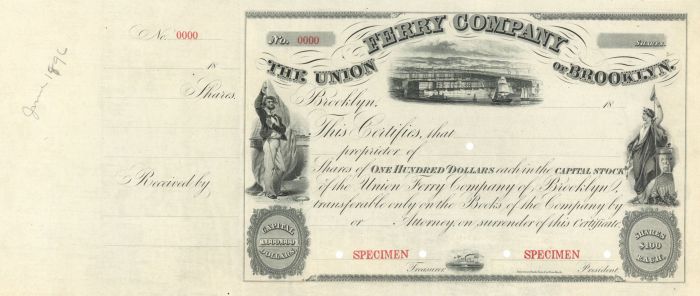 No. 0000
18
Shares.
Received by
June 1896
No. 0000
SHARES.
THE UNION FERRY COMPANY OF BROOKLYN.
Brooklyn, 18
This Certifies, that
proprietor of
Shares of ONE HUNDRED DOLLARS each in the CAPITAL STOCK
of the Union Ferry Company of Brooklyn,
transferable only on the Books of the Company by
or Attorney, on surrender of this Certificate.
CAPITAL
DOLLARS.
SHARES
$100
EACH.
SPECIMEN SPECIMEN
Treasurer President